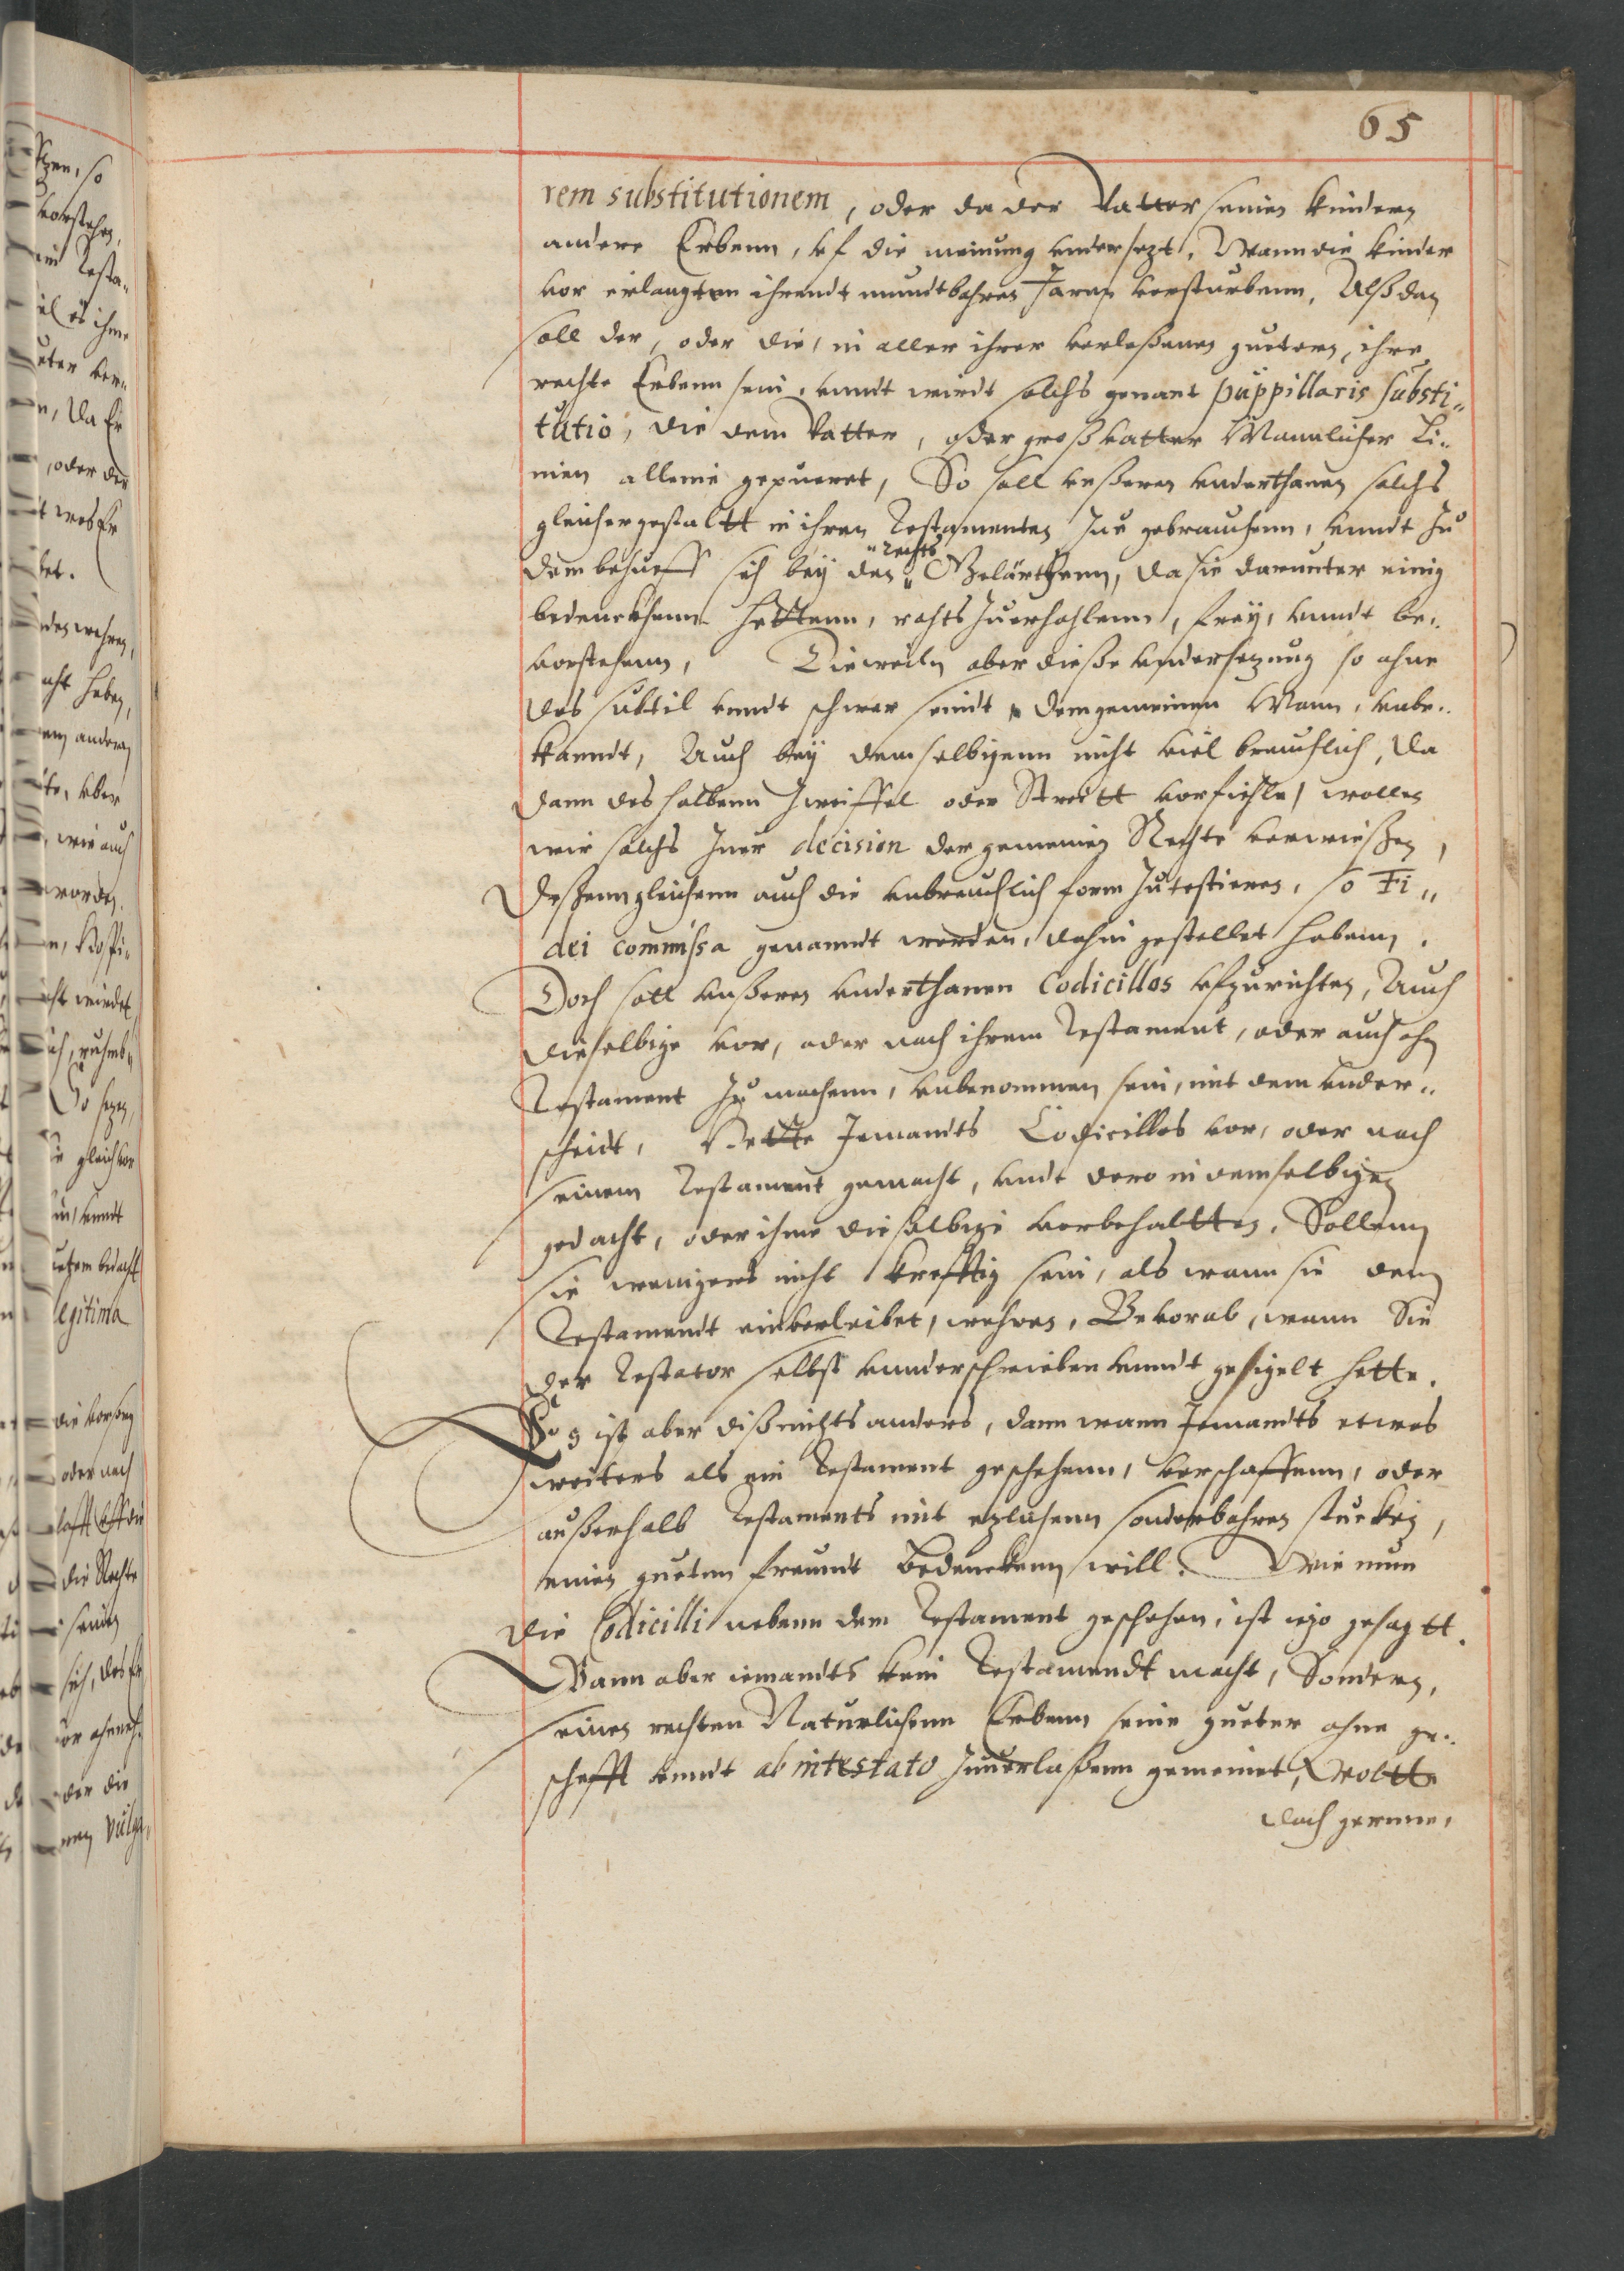 65
rem substitutionem, oder da der Vatter seinen kindern
andere Erbenn, vf die meinung undersezt, Wann die kinder
vor erlangten ihrendt mundtbahren Jaren versturbenn, Alßdan
soll der, oder die, in aller ihrer verlaßenen guetern, ihre
rechte Erbenn sein, vnndt wirdt solchs genant puppillaris substi„
tutio, die dem Vatter, oder großvatter Mannlicher Li„
nien alleine gepueret, So soll vnßeren vnderthanen solchs
gleichergestaltt in ihren Testamenten Zue gebrauchenn, vnndt Zu
dem behueff sich bey den „ Gelärthenn, da sie darunter einig
„rechts
bedenckhenn hettenn, rahts Zuerhohlenn, frey, vnndt be„
vorstehenn, Dieweiln aber dieße vndersezung so ohne
das subtil vnndt schwer seindt dem gemeinen Mann, vnbe„
kanndt, Auch bey demselbigenn nicht viel breuchlich, Da
dann deshalbenn Zweiffel oder Streitt vorfiehle, wollen
wir solchs Zuer decision der gemeinen Rechte verwießen,
Deßenngleichenn auch die vnbreuchlich form Zutestieren, so Fi„
dei commissa genanndt werden, dahin gestellet habenn.
Doch soll vnßeren vnderthanen Codicillos vfzurichten, Auch
dieselbige vor, oder nach ihrem Testament, oder auch ohn
Testament Zu machenn, vnbenommen sein, mit dem vnder„
scheidt, Hette Jemandts Codicillos vor, oder nach
seinem Testament gemacht, vndt dero in demselbigen
gedacht, oder ihme dieselbige vorbehaltten, Sollenn
sie wenigers nicht krefftig sein, als wann sie dem
Testamendt einverleibet, wehren, Bevorab, wann Sie
der Testator selbst vunderschrieben vnndt gesigelt hette.
Es ist aber diß nichts anders, dann wann Jemandts etwas
weiters als ein Testament geschehenn, verschaffenn, oder
außerhalb Testaments mit ezlichenn sonderbahren stucken,
einen gueten freundt Bedencken will. Wie nun
die Codicilli nebenn dem Testament geschehen, ist izo gesagtt.
Wann aber iemandts kein Testamendt macht, Sondern,
seinen rechten Naturlichenn Erbenn seine gueter ohne ge„
schefft vnndt ab intestato Zuuerlaßenn gemeinet, Wollte
dach gerenne,